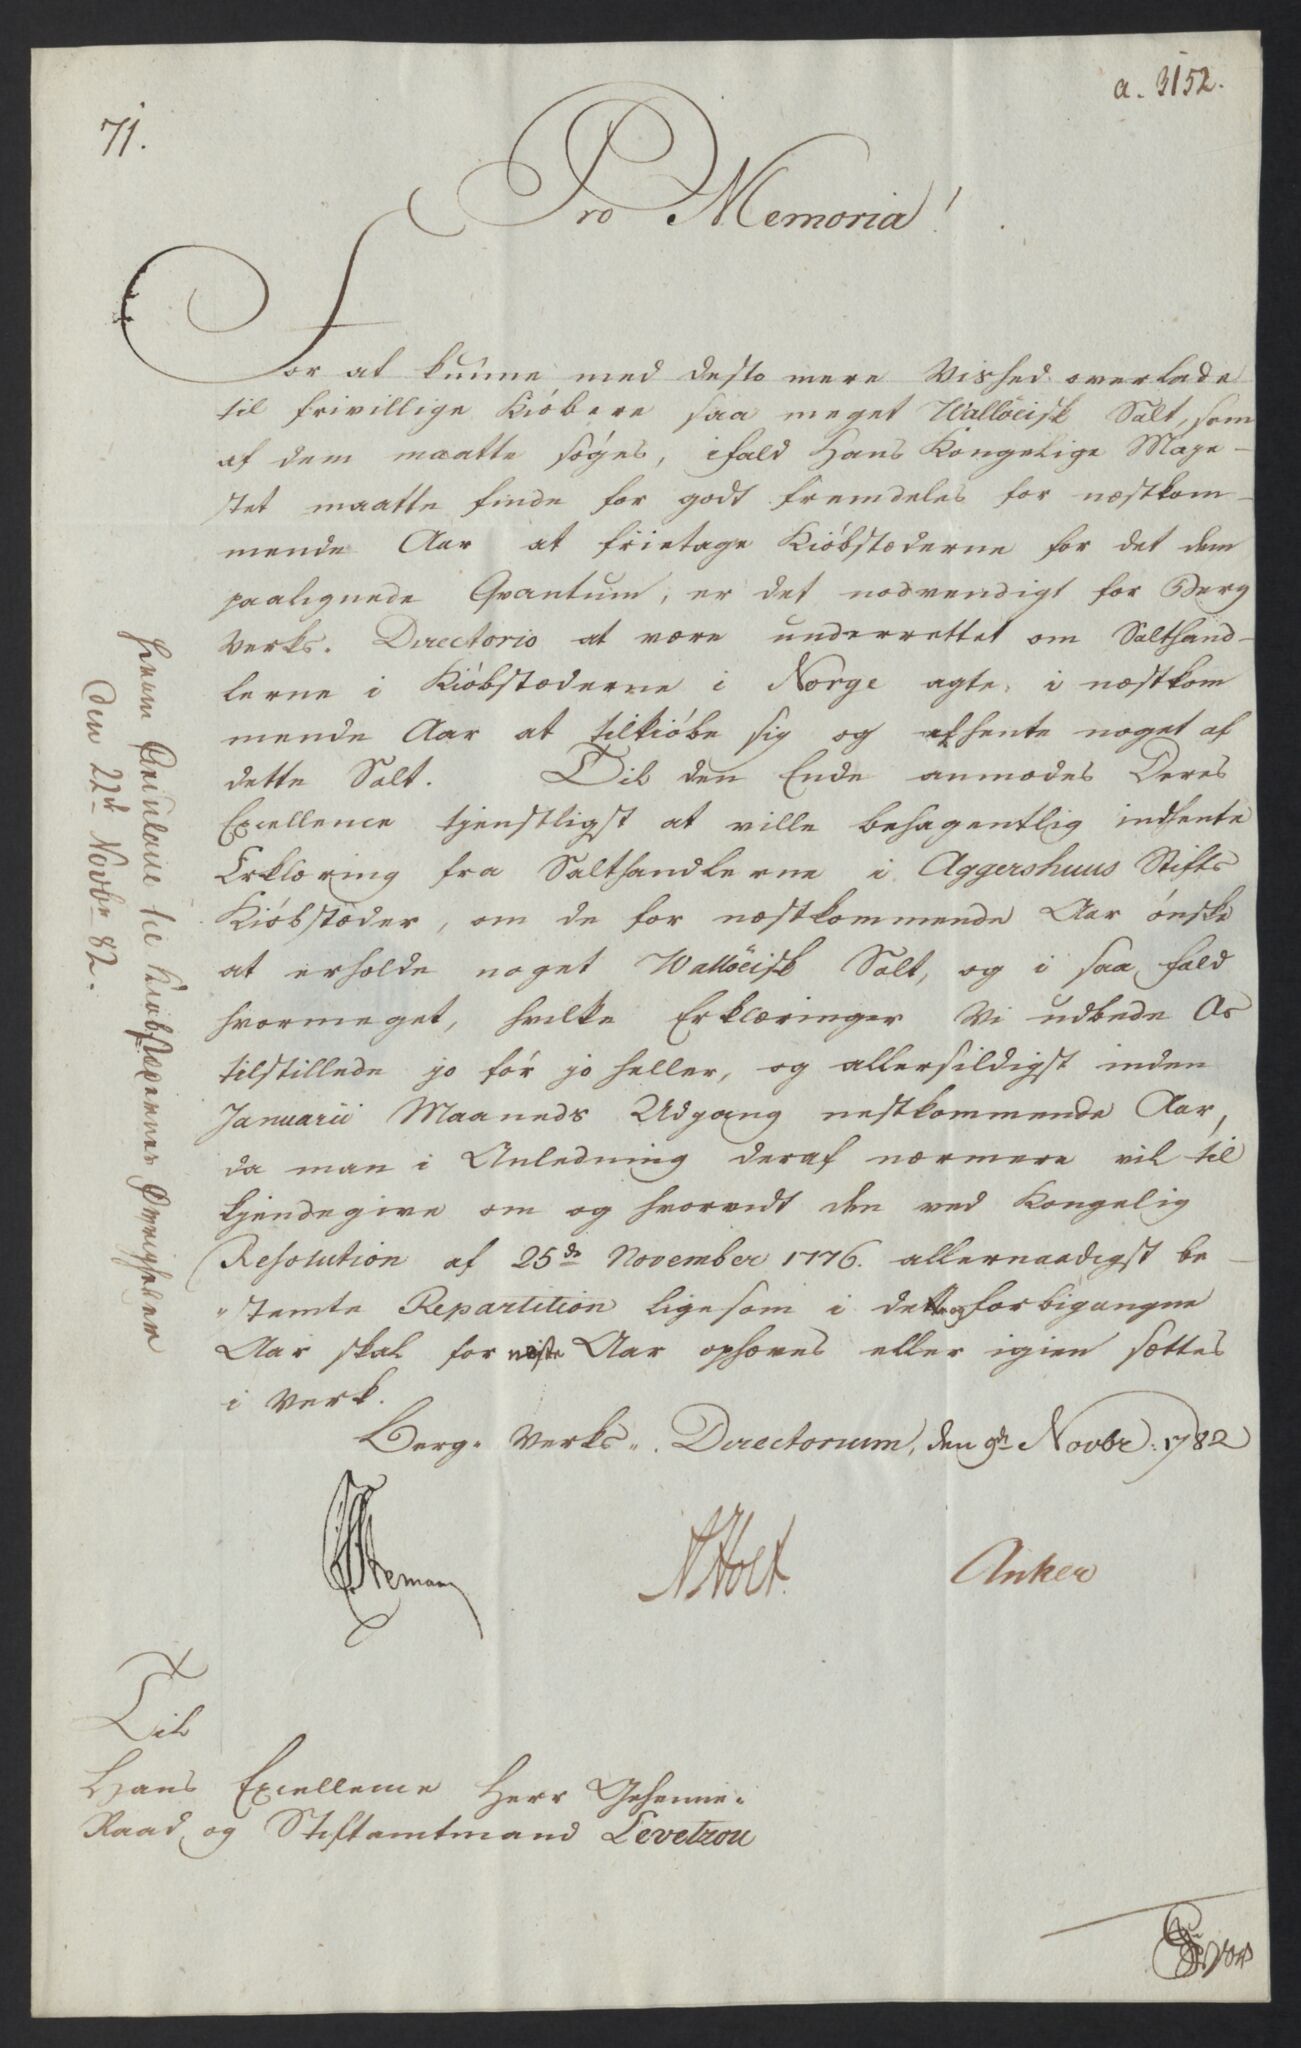 a. 3152.
71.
Pro Memoria!
For at kunne med desto mere Vished overlade
til frivillige Kiöbere saa meget Wallöeisk Salt, som
af dem maatte söges, ifald Hans Kongelige Maje-
stet maatte finde for godt fremdeles for næstkom-
mende Aar at frietage Kiöbstæderne for det dem
paalignede Qvantum, er det nödvendigt for Berg
Verks. Directorio at være underrettet om Salthand-
lerne i Kiöbstæderne i Norge agte i næstkom
mende Aar at tilkiöbe sig og afhente noget af
dette Salt. Til den Ende anmodes Deres
Excellence tjenstligst at ville behagentlig indhente
Erklæring fra Salthandlerne i Aggershuus Stifts
Kiöbstæder, om de for næstkommende Aar önske
at erholde noget Wallöeisk Salt, og i saa fald
hvormeget, hvilke Erklæringer Vi udbede Os
tilstillede jo för jo heller, og allersildigst inden
Januarii Maaneds Udgang nestkommende Aar,
da man i Anledning deraf nærmere vil til
kjendegive om og hvorvidt den ved Kongelig
Resolution af 25de November 1776. allernaadigst be-
"stemte Repartition ligesom i dette og forbigangne
Aar skal for næste Aar ophæves eller igien sættes
i Verk.
Berg-Verks-Directorium, den 9de Novbr: 1782
Stemann
NHolt.
Anker
Til
Hans Excellence Herr Geheime-
Raad og Stiftamtmand Levetzou
from Circulaire til Kiöbstædernes Övrigheder
den 22de Novbr 82.